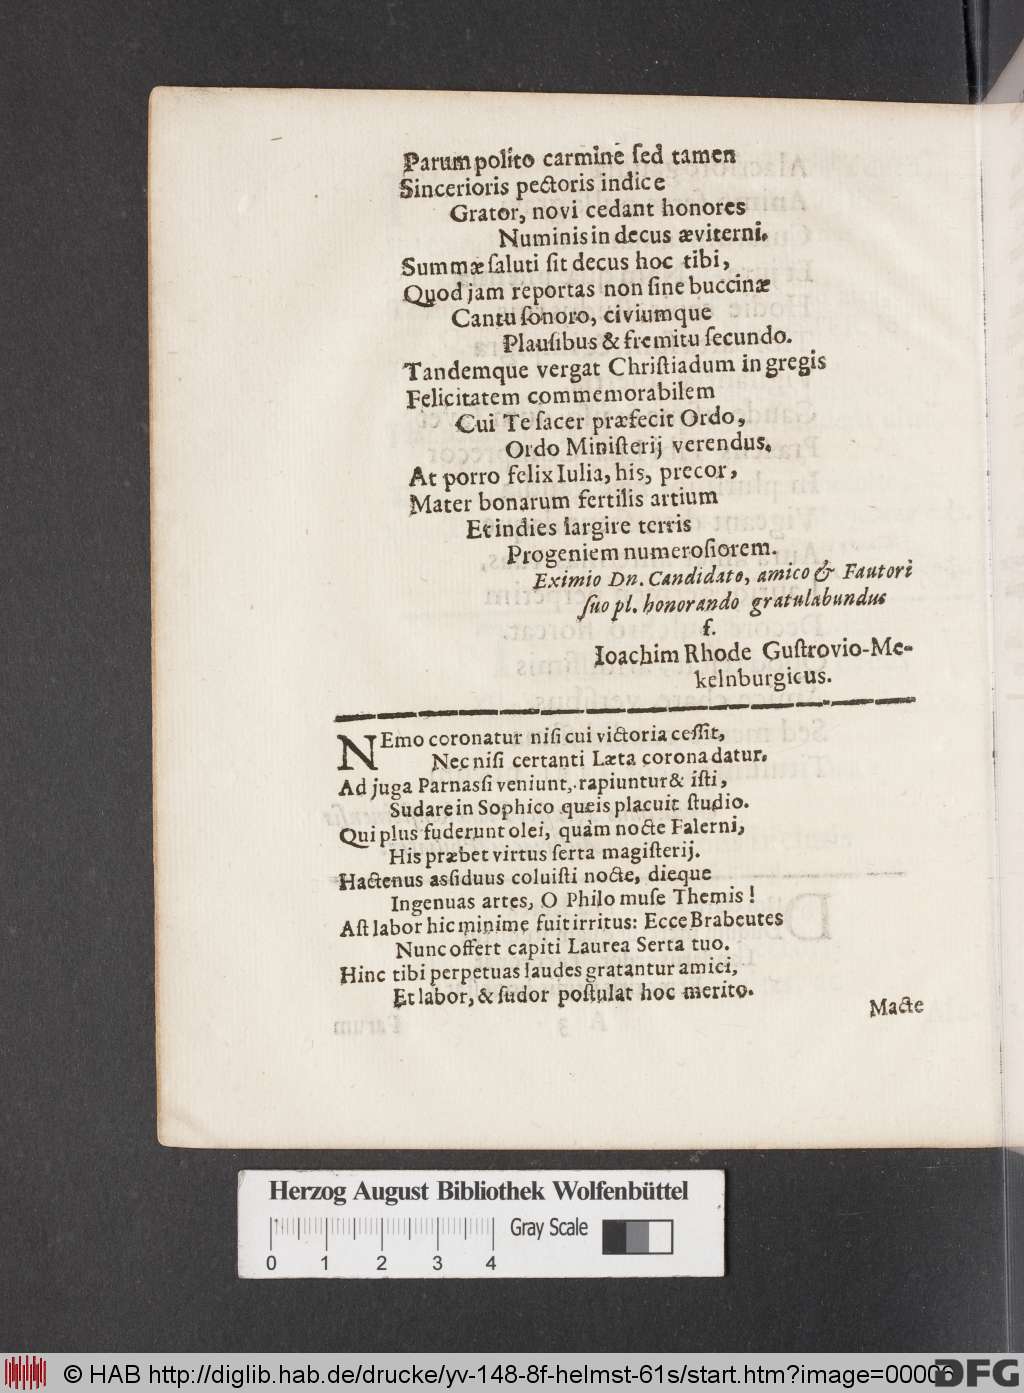 Parum polito carmine ſed tamen
Sincerioris pectoris indice
Grator, novi cedant honores
Numinis in decus æviterni.
Summæ ſaluti ſit decus hoc tibi,
Quod jam reportas non ſine buccinæ
Cantu ſonoro, civiumque
Plauſibus & fremitu ſecundo.
Tandemque vergat Chriſtiadum in gregis
Felicitatem commemorabilem
Cui Te ſacer præfecit Ordo,
Ordo Miniſterij verendus.
At porro felix Iulia, his, precor,
Mater bonarum fertilis artium
Et indies largire terris
Progeniem numeroſiorem.
Eximio Dn. Candidato, amico & Fautori
ſuo pl. honorando gratulabundus
f.
Ioachim Rhode Guſtrovio-Me-
kelnburgicus.
NEmo coronatur niſi cui victoria ceſſit,
Nec niſi certanti Læta corona datur.
Ad juga Parnaſſi veniunt, rapiuntur & iſti,
Sudare in Sophico queis placuit ſtudio.
Qui plus fuderunt olei, quàm nocte Falerni,
His præbet virtus ſerta magiſterij.
Hactenus aſſiduus coluiſti nocte, dieque
Ingenuas artes, O Philo muſe Themis!
Aſt labor hic minime fuit irritus: Ecce Brabeutes
Nunc offert capiti Laurea Serta tuo.
Hinc tibi perpetuas laudes gratantur amici,
Et labor, & ſudor poſtulat hoc merito.
Macte
Herzog August Bibliothek Wolfenbüttel
Gray Scale
0 1 2 3 4
© HAB http://diglib.hab.de/drucke/yv-148-8f-helmst-61s/start.htm?image=00006
DFG